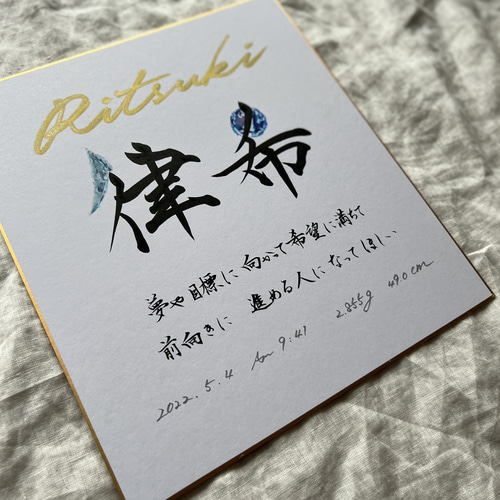 Ritsuki
律希
夢や目標に向かって希望に満ちて
前向きに 進める人になってほしい
2022.5.4 Am 9:41 2.855g 49.0cm